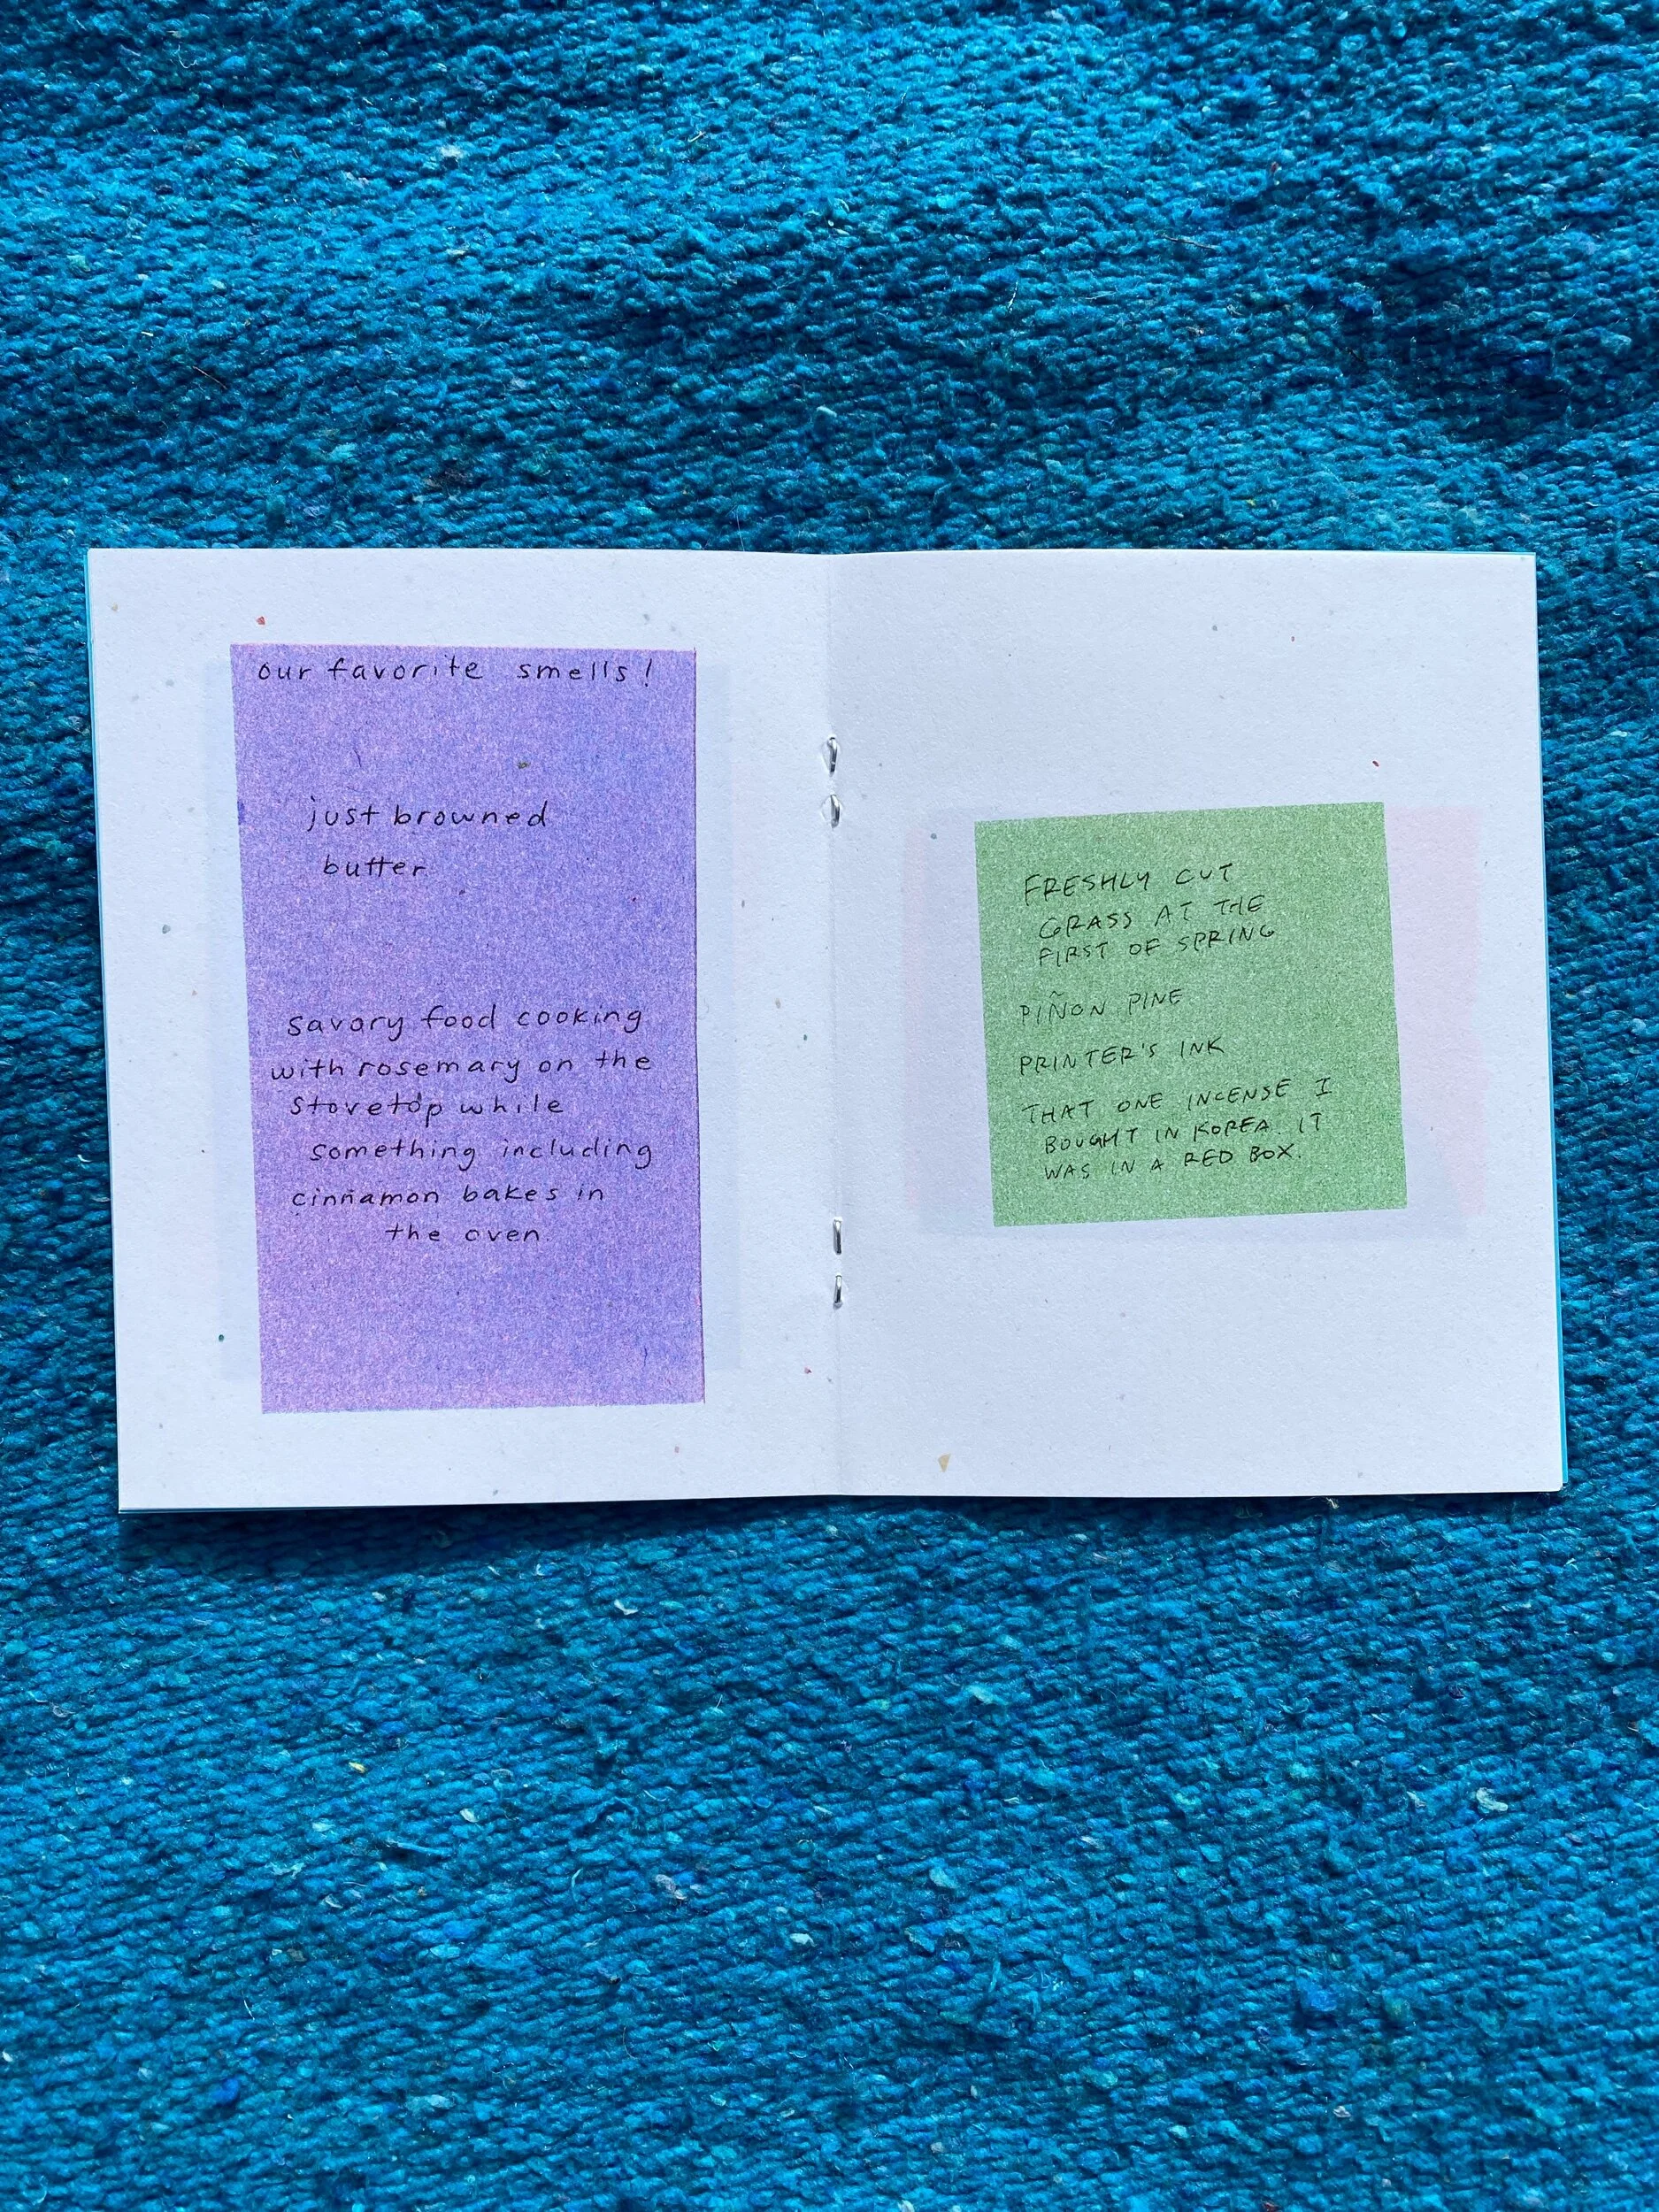 our favorite smells!
just browned
butter
savory food cooking
with rosemary on the
stovetop while
something including
cinnamon bakes in
the oven.
FRESHLY CUT
GRASS AT THE
FIRST OF SPRING
PIÑON PINE
PRINTER'S INK
THAT ONE INCENSE I
BOUGHT IN KOREA. IT
WAS IN A RED BOX.